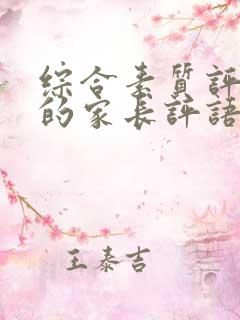 綜合素質評
的家長評語
王泰吉